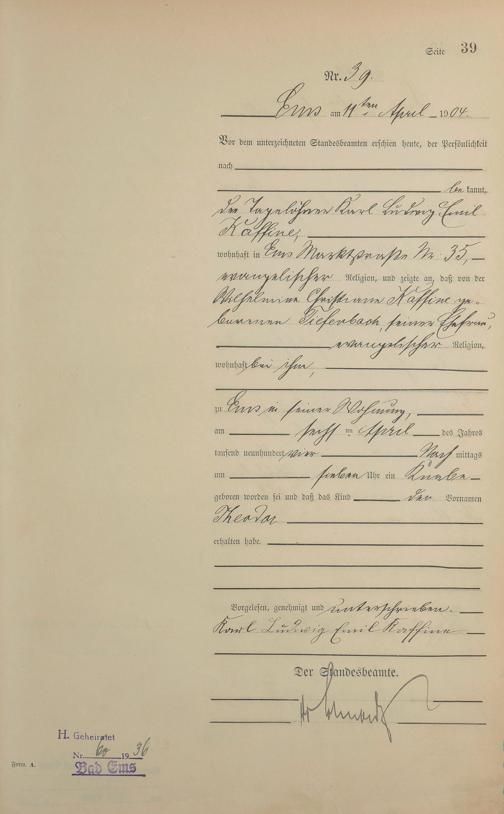 Seite 39
Nr. 39.
Ems am 11ten April 1904.
Vor dem unterzeichneten Standesbeamten erschien heute, der Persönlichkeit
nach
be kannt,
der Tagelöhner Karl Ludwig Emil
Kaffine,
wohnhaft in Ems Marktstraße Nr. 35,
evangelischer Religion, und zeigte an, daß von der
Wilhelmine Christiane Kaffine ge-
borenen Tiefenbach, seiner Ehefrau,
evangelischer Religion,
wohnhaft bei ihm,
zu Ems in seiner Wohnung,
am sechsten April des Jahres
tausend neunhundert vier Nach mittags
um sieben Uhr ein Knabe
geboren worden sei und daß das Kind den Vornamen
Theodor
erhalten habe.
Vorgelesen, genehmigt und unterschrieben.
Karl Ludwig Emil Kaffine
Der Standesbeamte.
H. Geheiratet
Nr. 60 1936
Bad Ems
Form. A.